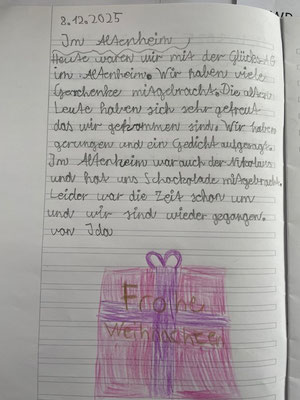 8.12.2025
Im Altenheim
Heute waren wir mit der Glücks AG
im Altenheim. Wir haben viele
Geschenke mitgebracht. Die alten
Leute haben sich sehr gefreut
das wir gekommen sind. Wir haben
gesungen und ein Gedicht aufgesagt.
Im Altenheim war auch der Nikolaus
und hat uns Schockolade mitgebracht.
Leider war die Zeit schon um
und wir sind wieder gegangen.
von Ida
Frohe
Weihnachten